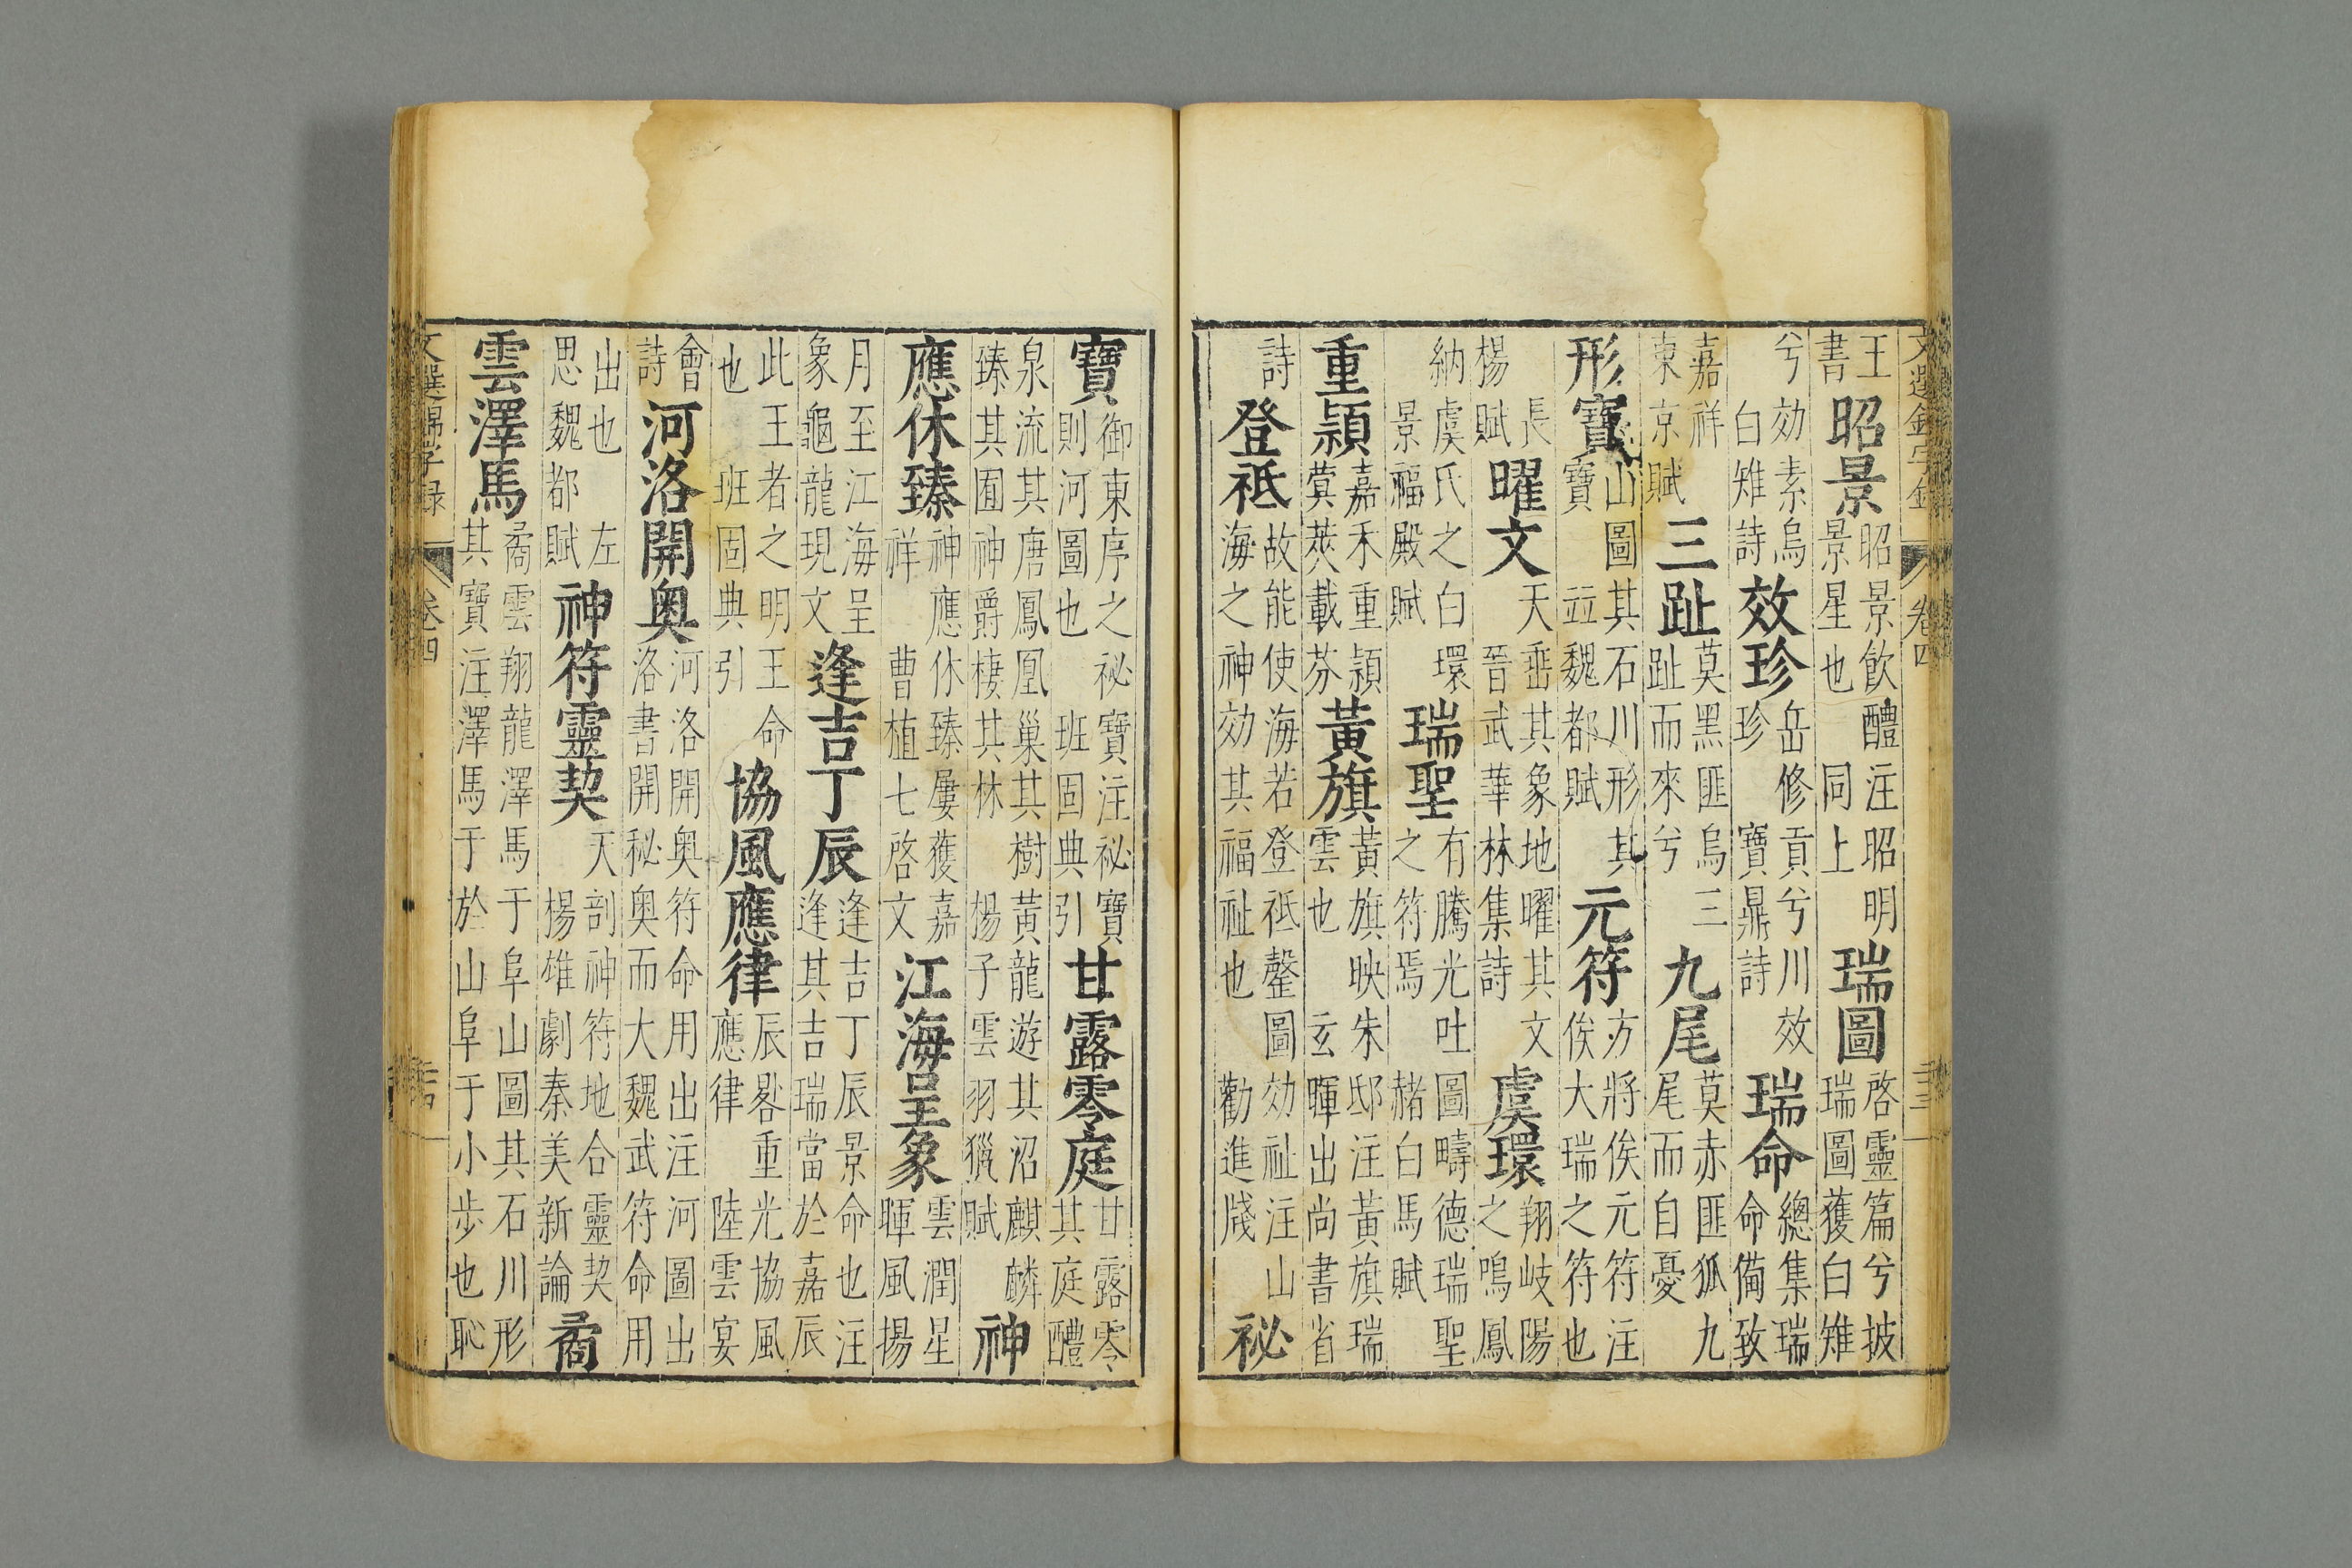 文選錦字錄 卷四
王書昭景昭景飲醴注昭明景星也 同上瑞圖啓靈篇兮披瑞圖獲白雉
兮効素烏白雉詩效珍岳修貢兮川效珍 寶鼎詩瑞命總集瑞命備致
嘉祥東京賦三趾莫黑匪烏三趾而來兮九尾莫赤匪狐九尾而自憂
形寶山圖其石川形其寶 竝魏都賦元符方將俟元符注俟大瑞之符也 長
楊賦曜文天垂其象地曜其文晉武華林集詩虞環翔岐陽之鳴鳳
納虞氏之白環景福殿賦瑞聖有騰光吐圖疇德瑞聖之符焉 赭白馬賦
重穎嘉禾重穎蓂莢載芬黃旗黃旗映朱邸注黃旗瑞雲也 玄暉出尚書省
詩登祇故能使海若登祇罄圖効祉注山海之神効其福祉也 勸進牋祕
寶御東序之祕寶注祕寶則河圖也 班固典引甘露零庭甘露零其庭醴
泉流其唐鳳凰巢其樹黃龍遊其沼麒麟臻其囿神爵棲其林 揚子雲羽獵賦神
應休臻神應休臻屢獲嘉祥 曹植七啓文江海呈象雲潤星暉風揚
月至江海呈象龜龍現文逢吉丁辰逢吉丁辰景命也注逢其吉瑞當於嘉辰
此王者之明王命也 班固典引協風應律辰晷重光協風應律 陸雲宴
會詩河洛開奧河洛開奧符命用出注河圖出洛書開秘奧而大魏武符命用
出也 左思魏都賦神符靈契天剖神符地合靈契楊雄劇秦美新論矞
雲澤馬矞雲翔龍澤馬于阜山圖其石川形其寶注澤馬于於山阜于小步也恥
文選錦字錄 卷四